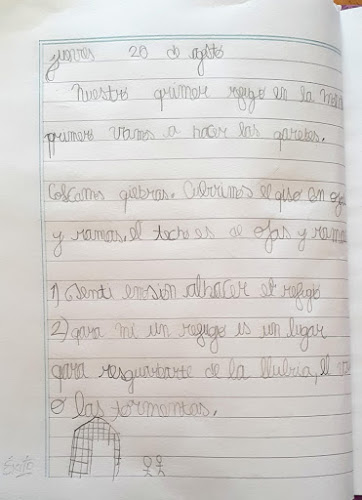 jueves 20 de agosto
Nuestro primer refugo en la
primero vamos a hacer las paretes.
Colocamos piebras. Cubrimos el piso en ojas
y ramas. el techo es de ojas y ramas
1) Senti emosión al hacer el refugo
2) para mi un refugo es un lugar
para resgurbarte de la llubia, el
o las tormentas.